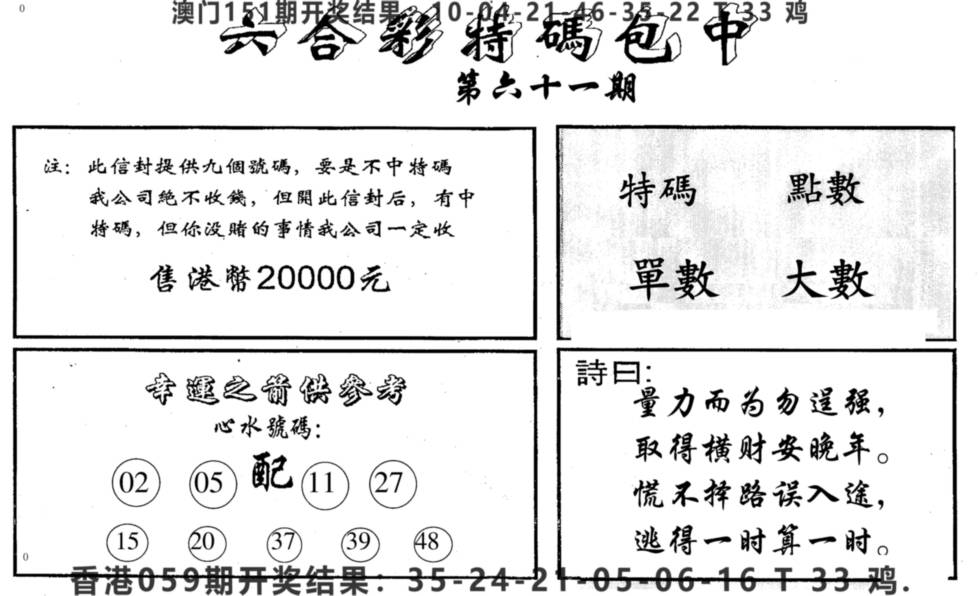 澳门151期开奖结果：10-04-21-46-35-22 T 33 鸡
六合彩特碼包中
第六十一期
注：此信封提供九個號碼，要是不中特碼
我公司絶不收錢，但開此信封后，有中
特碼，但你没賭的事情我公司一定收
售港幣20000元
特碼 點數
單數 大數
幸運之箭供參考
心水號碼:
02 05 配 11 27
15 20 37 39 48
詩曰:
量力而为勿逞强，
取得横财安晚年。
慌不择路误入途，
逃得一时算一时。
香港059期开奖结果：35-24-21-05-06-16 T 33 鸡.